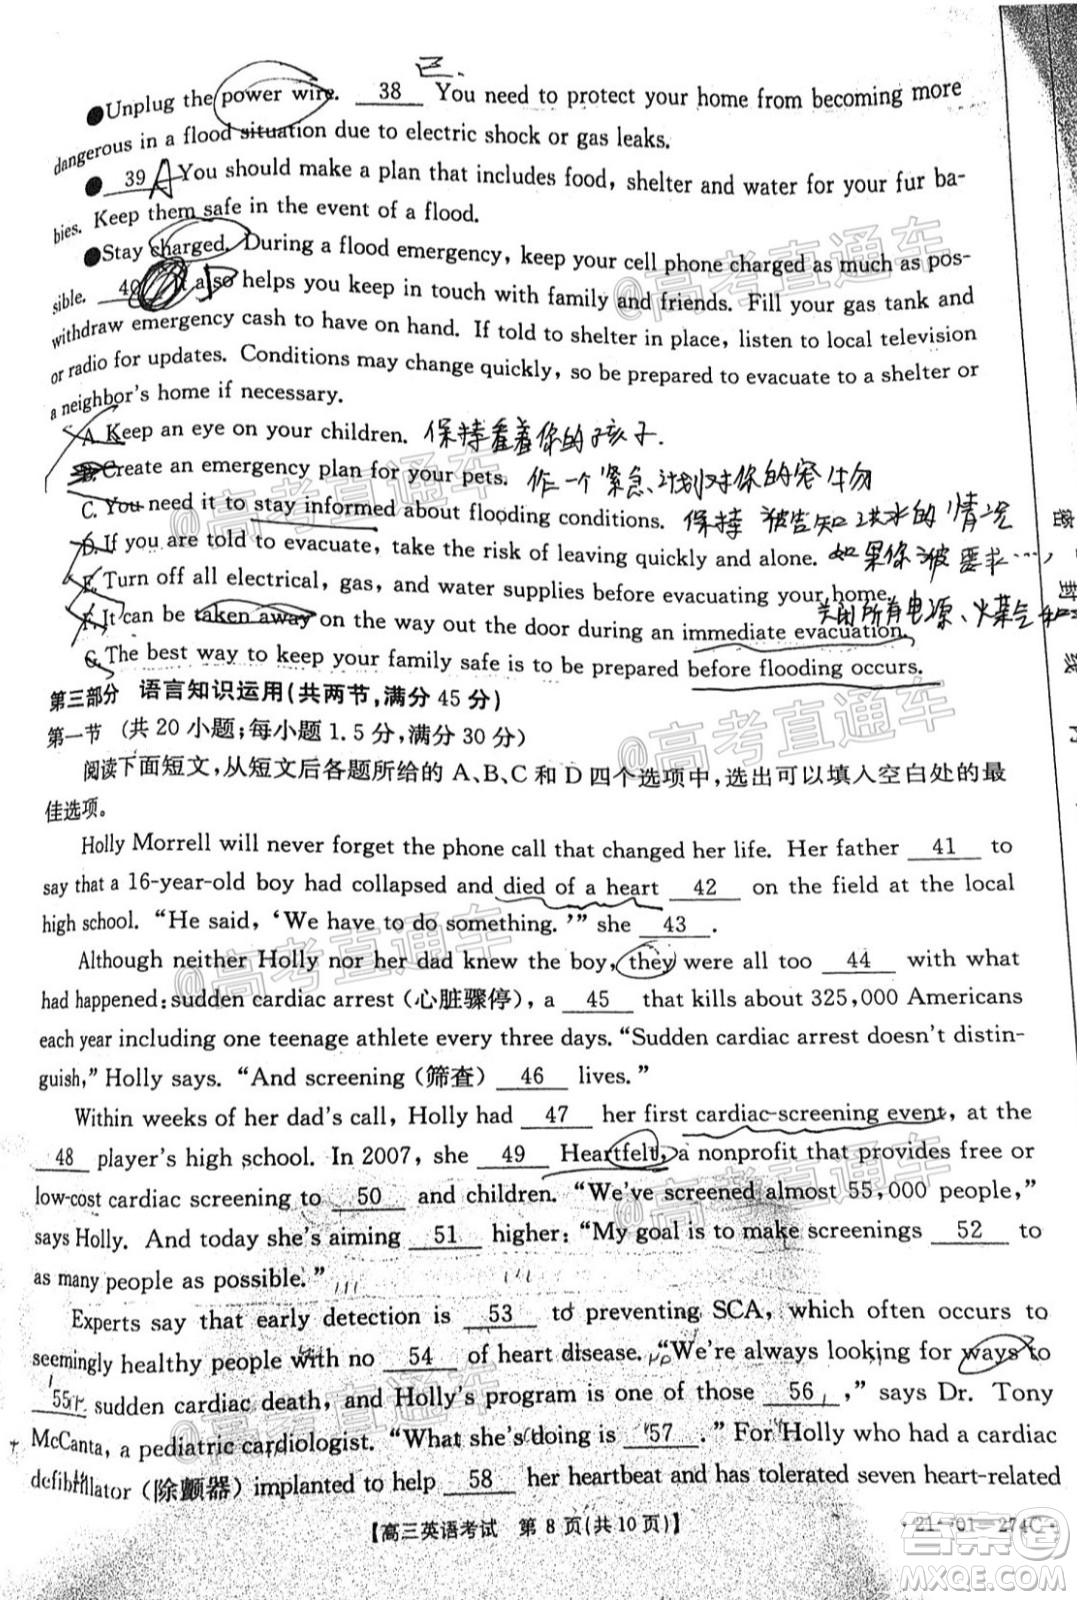 ●Unplug the power wire. 38 You need to protect your home from becoming more
dangerous in a flood situation due to electric shock or gas leaks.
● 39 A You should make a plan that includes food, shelter and water for your fur ba-
bies. Keep them safe in the event of a flood.
●Stay charged. During a flood emergency, keep your cell phone charged as much as pos-
sible. 40 It also helps you keep in touch with family and friends. Fill your gas tank and
withdraw emergency cash to have on hand. If told to shelter in place, listen to local television
or radio for updates. Conditions may change quickly, so be prepared to evacuate to a shelter or
a neighbor's home if necessary.
A. Keep an eye on your children. 保持看着你的孩子.
B. Create an emergency plan for your pets. 作一个紧急计划对你的宠物
C. You need it to stay informed about flooding conditions. 保持被告知洪水的情况
D. If you are told to evacuate, take the risk of leaving quickly and alone. 如果你被要求…,
E. Turn off all electrical, gas, and water supplies before evacuating your home.
关闭所有电源、火煤气和
F. It can be taken away on the way out the door during an immediate evacuation.
G. The best way to keep your family safe is to be prepared before flooding occurs.
第三部分 语言知识运用(共两节,满分 45 分)
第一节 (共 20 小题;每小题 1.5 分,满分 30 分)
阅读下面短文,从短文后各题所给的 A、B、C 和 D 四个选项中,选出可以填入空白处的最
佳选项。
Holly Morrell will never forget the phone call that changed her life. Her father 41 to
say that a 16-year-old boy had collapsed and died of a heart 42 on the field at the local
high school. “He said, ‘We have to do something.’” she 43 .
Although neither Holly nor her dad knew the boy, they were all too 44 with what
had happened: sudden cardiac arrest (心脏骤停), a 45 that kills about 325,000 Americans
each year including one teenage athlete every three days. “Sudden cardiac arrest doesn't distin-
guish,” Holly says. “And screening (筛查) 46 lives.”
Within weeks of her dad's call, Holly had 47 her first cardiac-screening event, at the
48 player's high school. In 2007, she 49 Heartfelt, a nonprofit that provides free or
low-cost cardiac screening to 50 and children. “We've screened almost 55,000 people,”
says Holly. And today she's aiming 51 higher: “My goal is to make screenings 52 to
as many people as possible.”
Experts say that early detection is 53 to preventing SCA, which often occurs to
seemingly healthy people with no 54 of heart disease. “We're always looking for ways to
55 sudden cardiac death, and Holly's program is one of those 56 ,” says Dr. Tony
McCanta, a pediatric cardiologist. “What she's doing is 57 .” For Holly who had a cardiac
defibrillator (除颤器) implanted to help 58 her heartbeat and has tolerated seven heart-related
【高三英语考试 第 8 页(共 10 页)】
·21-01-274C·
密
封
线
@高考直通车
@高考直通车
@高考直通车
@高考直通车
@高考直通车
@高考直通车
答案圈
MXQE.COM